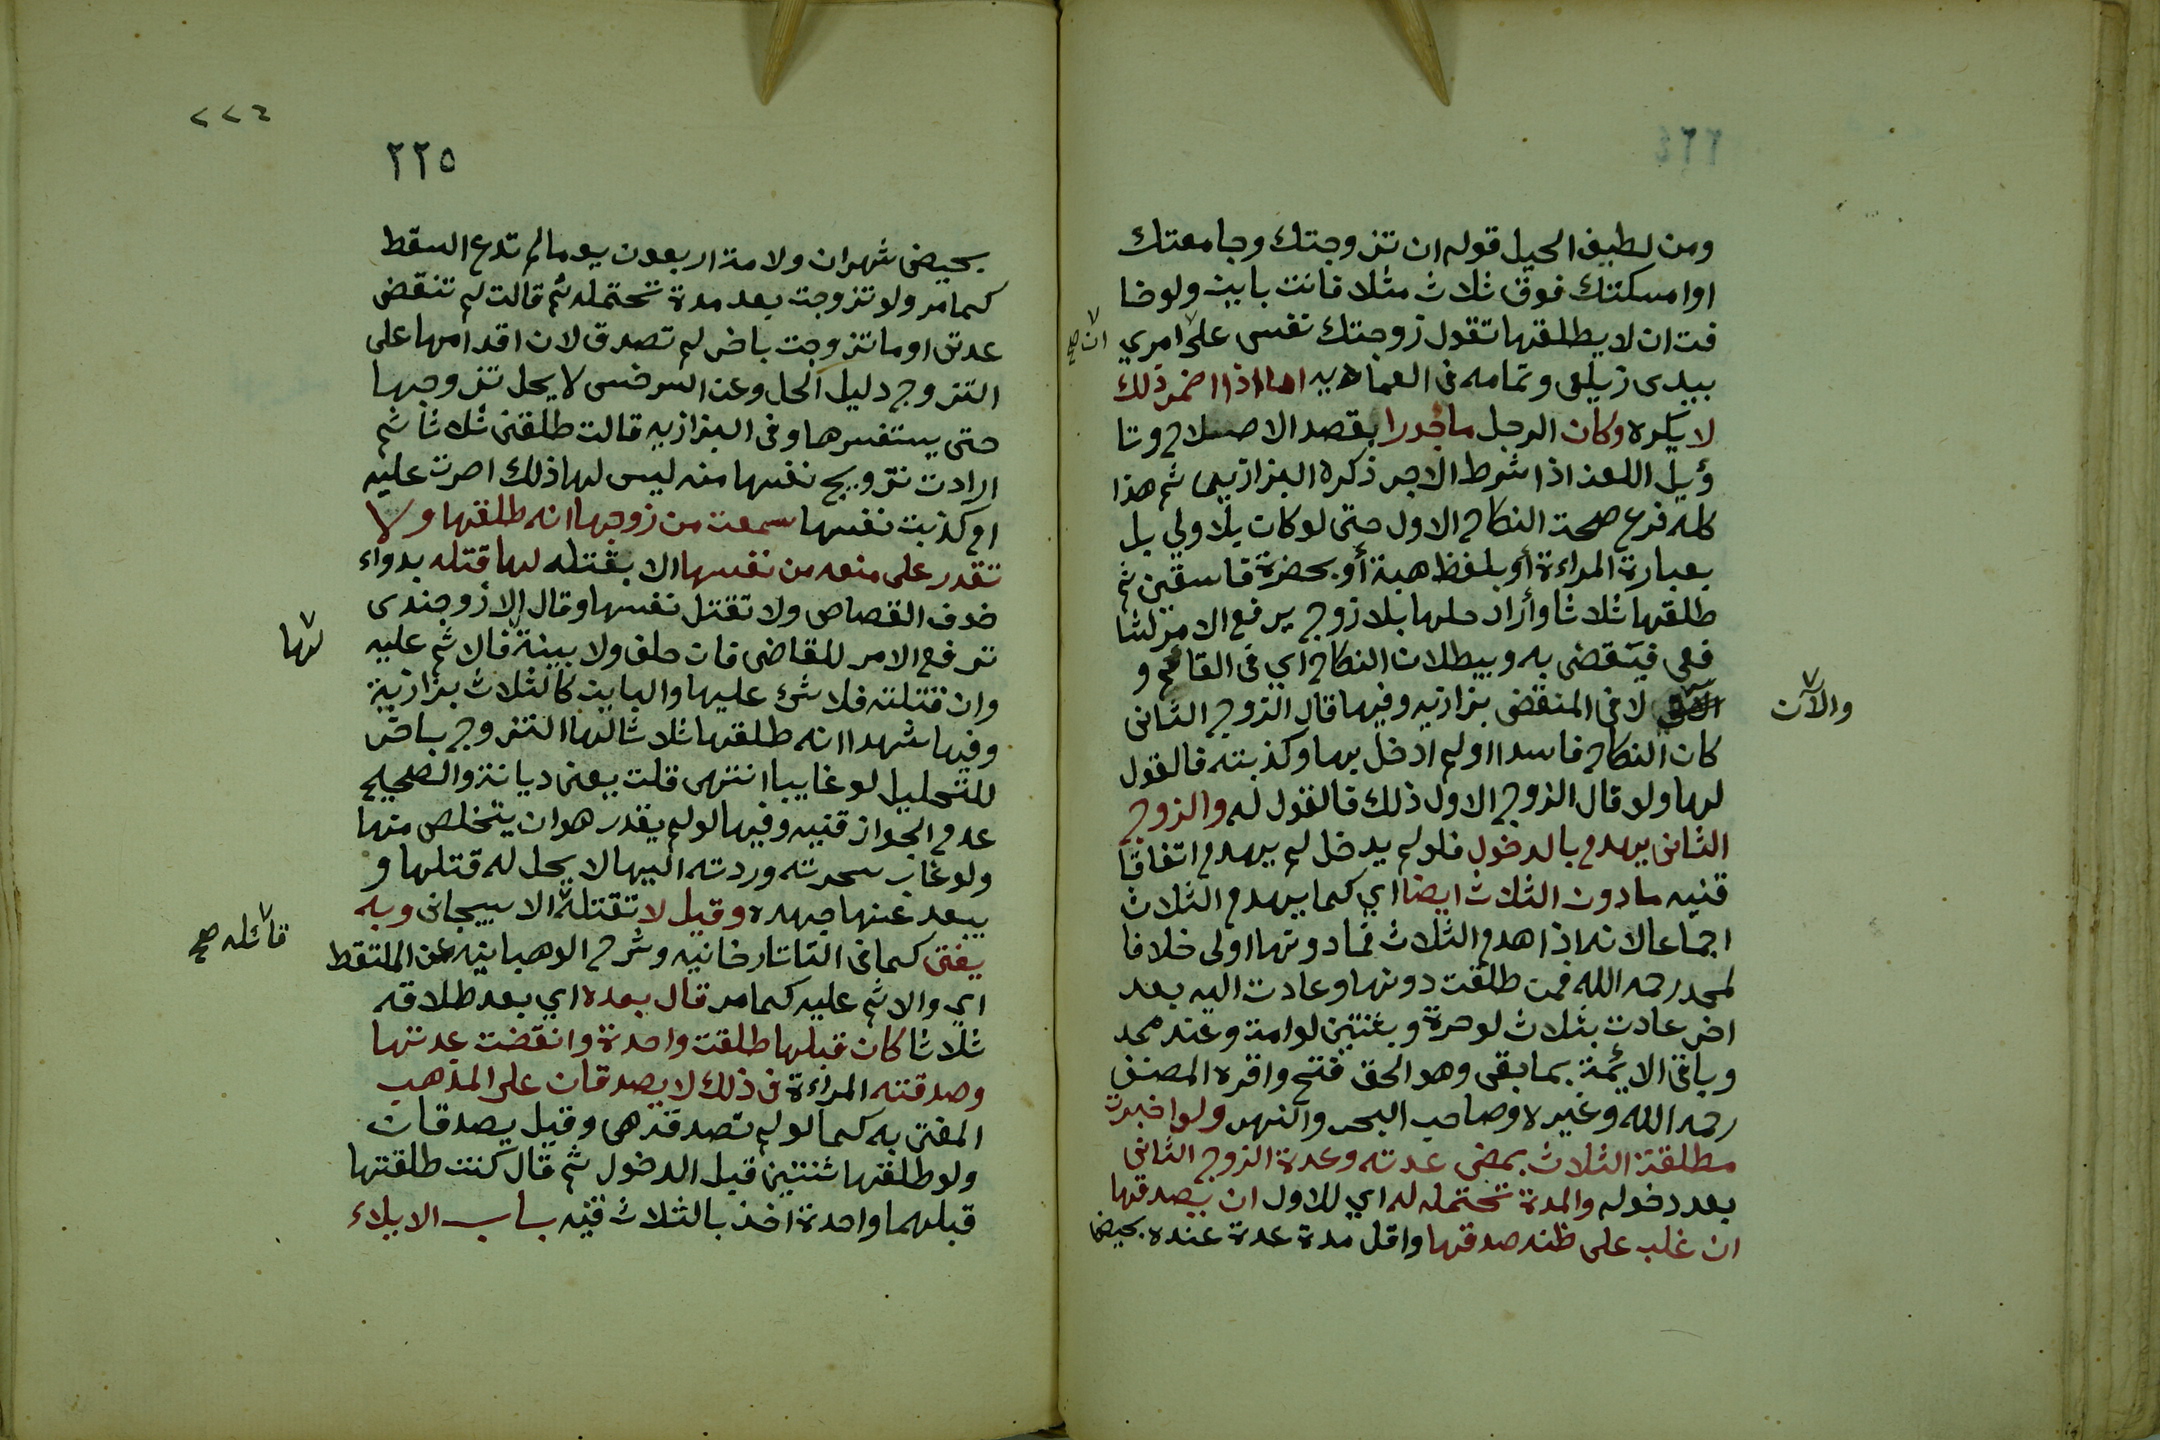 ومن لطيف الحيل قوله ان تزوجتك وجامعتك
او امسكتك فوق ثلاث مثلا فانت باين ولو خا
فت ان لا يطلقها تقول زوجتك نفسي على امري
ان صح
بيدي زيلعي وتمامه في العماديه اما اذا اضمر ذلك
لا يكره وكان الرجل ماجورا بقصد الاصلاح وتا
ؤيل اللعن اذا شرط الاجر ذكره البزازي ثم هذا
كله فرع صحة النكاح الاول حتى لو كان بلا ولي بل
بعبارة المراءة أو بلفظ هبة أو بحضرة فاسقين ثم
طلقها ثلاثا وأراد حلها بلا زوج يرفع الامر لشا
فعي فيقضى به وببطلان النكاح اي في القائم و
والآن
لا في المنقضي بزازيه وفيها قال الزوج الثاني
كان النكاح فاسدا او لم ادخل بها وكذبته فالقول
لها ولو قال الزوج الاول ذلك فالقول له والزوج
الثاني يهدم بالدخول فلو لم يدخل لم يهدم اتفاقا
قنيه مادون الثلاث ايضا اي كما يهدم الثلاث
اجماعا لانه اذا هدم الثلاث فمادونها اولى خلافا
لمحمد رحمه الله فمن طلقت دونها وعادت اليه بعد
اخر عادت بثلاث لو حرة وبثنتين لو امة وعند محمد
وباقي الايئمة بما بقي وهو الحق فتح واقره المصنف
رحمه الله وغيره وصاحب البحر والنهر ولو اخبرت
مطلقة الثلاث بمضي عدته وعدة الزوج الثاني
بعد دخوله والمدة تحتمله له اي للاول ان يصدقها
ان غلب على ظنه صدقها واقل مدة عدة عنده بحيضا
٢٢٤
٢٢٥
بحيض شهران ولامة اربعون يوما لم تدع السقط
كما مر ولو تزوجت بعد مدة تحتمله ثم قالت لم تنقض
عدتي او ما تزوجت باخر لم تصدق لان اقدامها على
التزوج دليل الحل وعن السرخسي لا يحل تزوجها
حتى يستفسرها وفي البزازيه قالت طلقني ثلاثا ثم
ارادت تزويج نفسها منه ليس لها ذلك اصرت عليه
ام كذبت نفسها سمعت من زوجها انه طلقها ولا
تقدر على منعه من نفسها الا بقتله لها قتله بدواء
خوف القصاص ولا تقتل نفسها وقال الاوزجندي
ترفع الامر للقاضي فان حلف ولا بينة فالاثم عليه
لها
وان قتلته فلا شئ عليها والباين كالثلاث بزازية
وفيها شهدا انه طلقها ثلاثا لها التزوج باخر
للتحليل لو غايبا انتهى قلت يعني ديانة والصحيح
عدم الجواز قنيه وفيها لو لم يقدر هو ان يتخلص منها
ولو غاب سحرته وردته اليها لا يحل له قتلها و
يبعد عنها جهده وقيل لا تقتله الاسبيجاني وبه
قائله صح
يفتى كما في التاتارخانيه وشرح الوهبانيه عن الملتقط
اي والاثم عليه كما مر قال بعده اي بعد طلاقه
ثلاثا كان قبلها طلقت واحدة وانقضت عدتها
وصدقته المراءة في ذلك لا يصدقان على المذهب
المفتى به كما لو لم تصدقه هي وقيل يصدقان
ولو طلقها ثنتين قبل الدخول ثم قال كنت طلقتها
قبلهما واحدة اخذ بالثلاث قنيه باب الايلاء